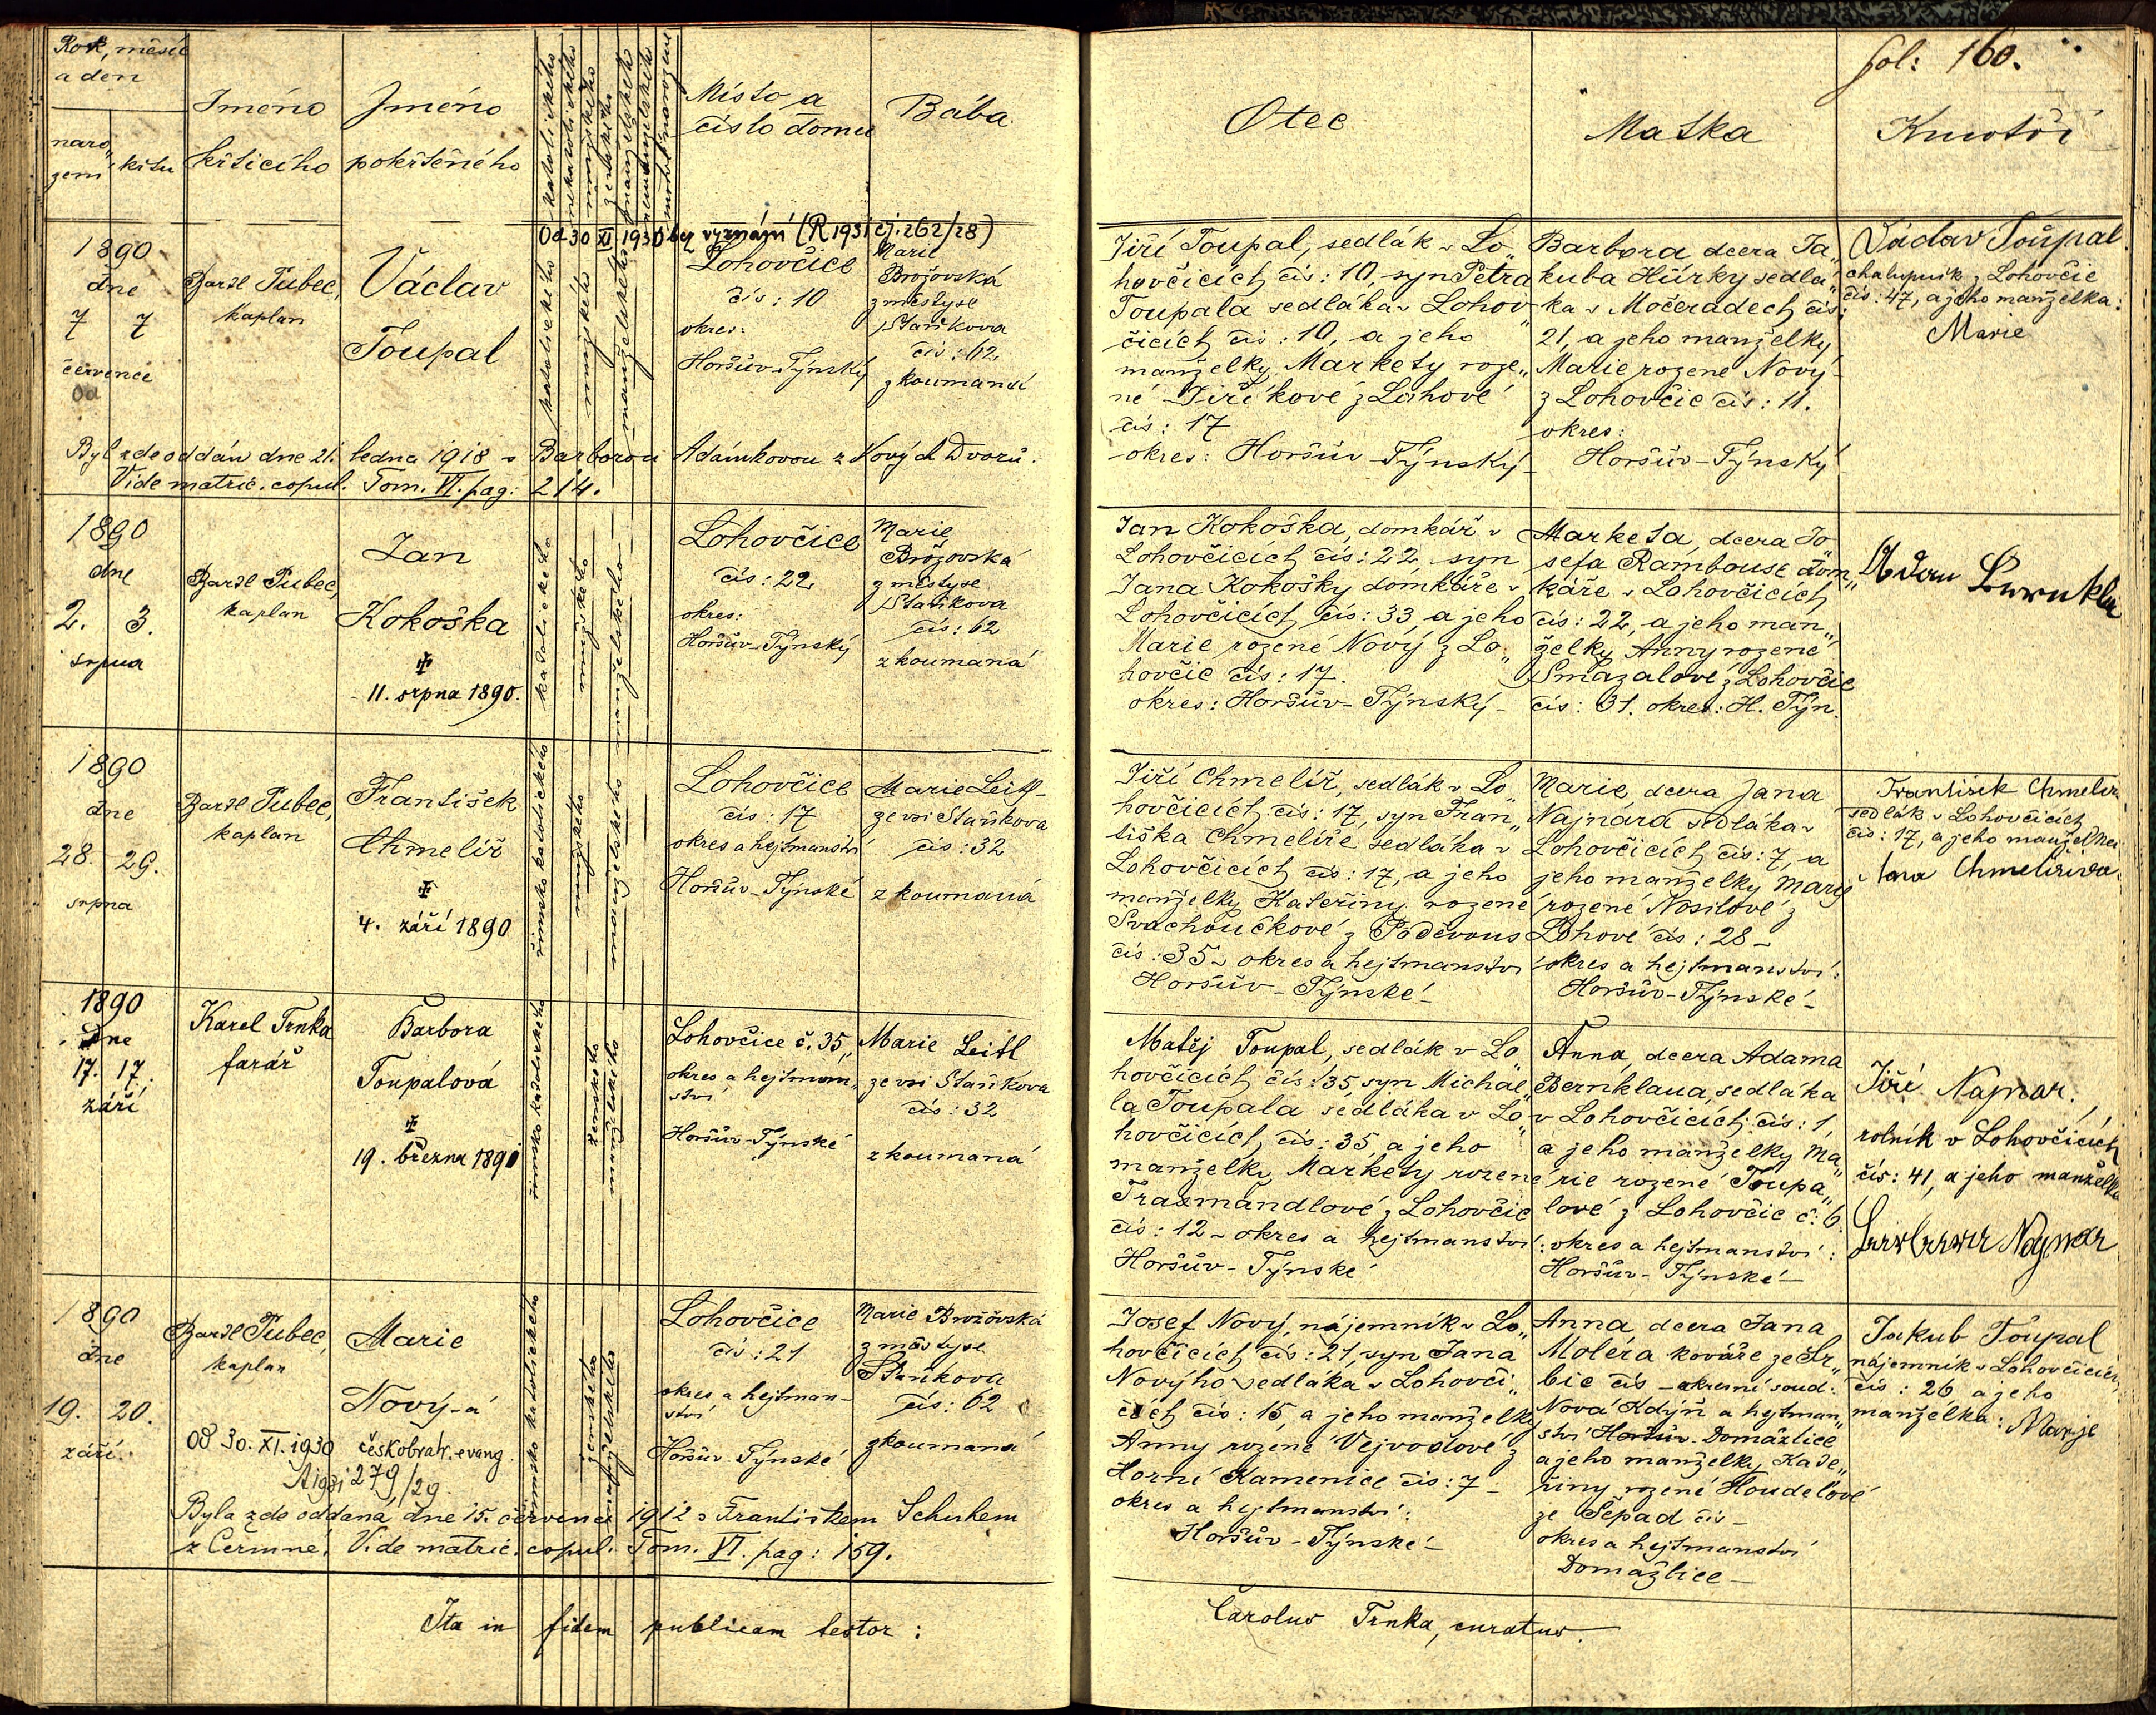 fol: 160.
Rok, měsíc
a den
naro„
zení
křtu
Jméno
křtícího
Jméno
pokřtěného
katolického
nekatolického
mužského
ženského
manželského
nemanželského
mrtvě narozené
Místo a
číslo domu
Bába
Otec
Matka
Kmotři
Od 30 XI 1930 bez vyznání (R 1931 čj. 262/28)
1890
dne
7 7
července
Od
Karel Pubec,
kaplan
Václav
Toupal
katolického
mužského
manželského
Lohovčice
čís: 10
okres:
Horšův-Týnský
Marie
Brožovská
z městyse
Staňkova
čís: 62
zkoumaná
Jiří Toupal, sedlák v Lo„
hovčicích, čís: 10, syn Petra
Toupala sedláka v Lohov„
čicích čís: 10, a jeho
manželky Markety roze„
né Jiříkové z Lohové
čís: 17
okres: Horšův-Týnský-
Barbora dcera Ja„
kuba Hůrky sedlá„
ka v Močeradech čís:
21, a jeho manželky
Marie rozené Nový-
z Lohovčic čís: 11.
okres:
Horšův-Týnský
Václav Toupal
chalupník z Lohovčic
čís: 47, a jeho manželka:
Marie
Byl zde oddán dne 21. ledna 1918 s Barborou Adámkovou z Nových Dvorů.
Vide matric. copul. Tom. VI. pag: 214.
1890
dne
2. 3.
srpna
Karel Pubec,
kaplan
Jan
Kokoška
11. srpna 1890.
katolického
mužského
manželského
Lohovčice
čís: 22
okres:
Horšův-Týnský
Marie
Brožovská
z městyse
Staňkova
čís: 62
zkoumaná
Jan Kokoška, domkář v
Lohovčicích, čís: 22, syn
Jana Kokošky domkáře v
Lohovčicích, čís: 33, a jeho
Marie rozené Nový z Lo„
hovčic čís: 17.
okres: Horšův-Týnský-
Marketa, dcera Jo„
sefa Rambouse dom„
káře v Lohovčicích
čís: 22, a jeho man„
želky Anny rozené
Smazalové z Lohovčic
čís: 31. okres: H. Týn.
Adam
1890
dne
28. 29.
srpna
Karel Pubec,
kaplan
František
Chmelíř
4. září 1890
římsko katolického
mužského
manželského
Lohovčice
čís: 17
okres a hejtmanství
Horšův-Týnské
Marie Leitl-
ze vsi Staňkova
čís: 32
zkoumaná
Jiří Chmelíř, sedlák v Lo„
hovčicích, čís: 17, syn Fran„
tiška Chmelíře sedláka v
Lohovčicích čís: 17, a jeho
manželky Kateřiny rozené
Svachoučkové z Poděvous
čís: 35- okres a hejtmanství
Horšův-Týnské-
Marie, dcera Jana
Najnára sedláka v
Lohovčicích čís: 7, a
jeho manželky Marie
rozené Nosilové z
Lohové čís: 28-
okres a hejtmanství:
Horšův-Týnské-
František Chmelíř
sedlák v Lohovčicích
čís: 17, a jeho manželka
Chmelířová
1890
dne
17. 17.
září
Karel Trnka
farář
Barbora
Toupalová
19. března 1891
římsko katolického
ženského
manželského
Lohovčice č. 35„
okres a hejtman„
ství
Horšův-Týnské
Marie Leitl
ze vsi Staňkova
čís: 32
zkoumaná
Matěj Toupal, sedlák v Lo„
hovčicích, čís: 35, syn Michae„
la Toupala sedláka v Lo„
hovčicích, čís: 35, a jeho
manželky Markety rozené
Traxmandlové z Lohovčic
čís: 12- okres a hejtmanství:
Horšův-Týnské
Anna, dcera Adama
Bernklaua, sedláka
v Lohovčicích, čís: 1,
a jeho manželky Ma„
rie rozené Toupa„
lové z Lohovčic č: 6.
okres a hejtmanství:
Horšův-Týnské-
Jiří Najnar,
rolník v Lohovčicích
čís: 41, a jeho manželka
Barbara Najnar
1890
dne
19. 20.
září
Karel Pubec,
kaplan
Marie
Nový-á
Od 30. XI. 1930 českobratr. evang.
A 1931 279/29.
římsko katolického
ženského
manželského
Lohovčice
čís: 21
okres a hejtman-
ství
Horšův-Týnské
Marie Brožovská
z městyse
Staňkova
čís: 62
zkoumaná
Josef Nový, nájemník v Lo„
hovčicích čís: 21, syn Jana
Nového sedláka v Lohovči„
cích čís: 15, a jeho manželky
Anny rozené Vejvodové z
Horní Kamenice čís: 7-
okres a hejtmanství:
Horšův-Týnské-
Anna dcera Jana
Moléra kováře ze Sr„
bic čís - okresní soud:
Nová Kdýň a hejtman„
ství Horšův- Domažlice
a jeho manželky Kate„
řiny rozené Houdelové
ze Sepad čís-
okres a hejtmanství
Domažlice-
Jakub Toupal
nájemník v Lohovčicích,
čís: 26 a jeho
manželka: Marye
Byla zde oddaná dne 15. července 1912 s Františkem Schuhem
z Čermné. Vide matric. copul. Tom. VI. pag: 159.
Ita in fidem publicam testor:
Carolus Trnka, curatus.